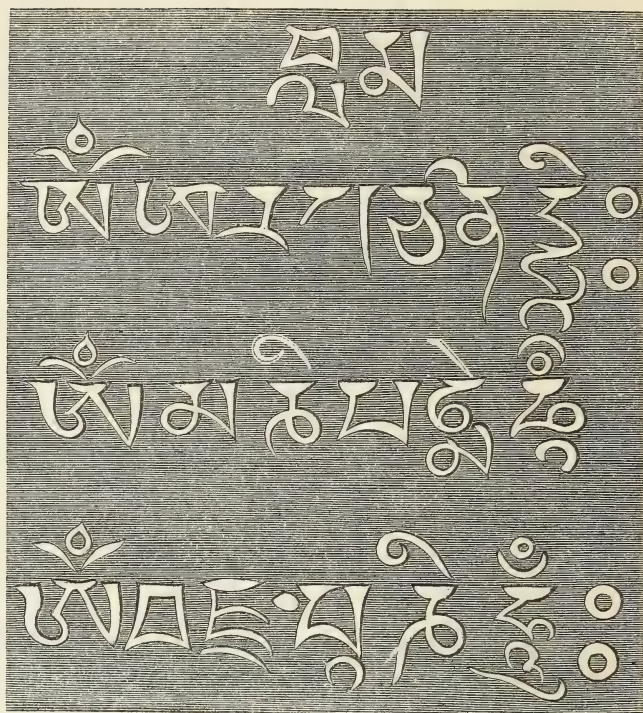 བླམ
ཨོཾཨརཔཙནདྷཱིཿ
ཨོཾམཎིཔདྨེཧཱུྃ
ཨོཾབཛྲ་པཱཎིཧཱུྃ༔